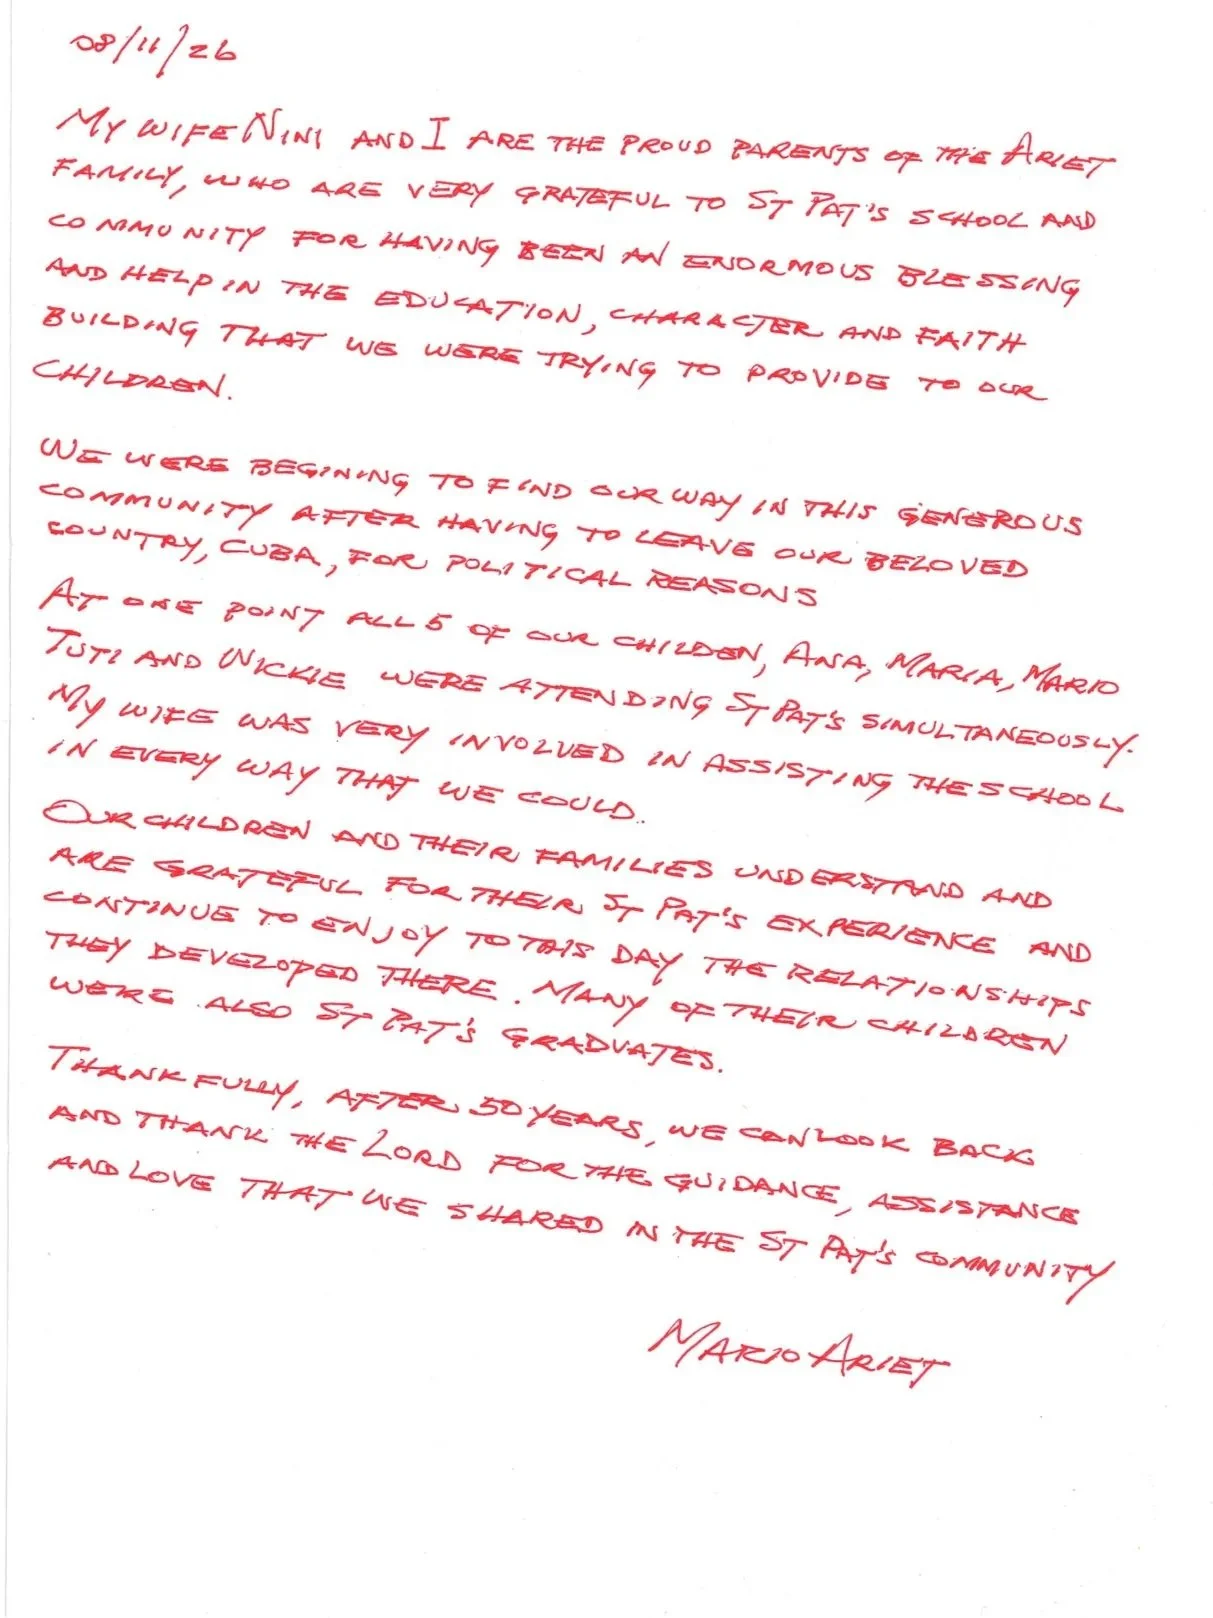 08/11/26
MY WIFE NINI AND I ARE THE PROUD PARENTS OF THE ARIET
FAMILY, WHO ARE VERY GRATEFUL TO ST PAT'S SCHOOL AND
COMMUNITY FOR HAVING BEEN AN ENORMOUS BLESSING
AND HELP IN THE EDUCATION, CHARACTER AND FAITH
BUILDING THAT WE WERE TRYING TO PROVIDE TO OUR
CHILDREN.
WE WERE BEGINING TO FIND OUR WAY IN THIS GENEROUS
COMMUNITY AFTER HAVING TO LEAVE OUR BELOVED
COUNTRY, CUBA, FOR POLITICAL REASONS
AT ONE POINT ALL 5 OF OUR CHILDEN, ANA, MARIA, MARIO
TUTI AND VICKIE WERE ATTENDING ST PAT'S SIMULTANEOUSLY.
MY WIFE WAS VERY INVOLVED IN ASSISTING THE SCHOOL
IN EVERY WAY THAT WE COULD.
OUR CHILDREN AND THEIR FAMILIES UNDERSTAND AND
ARE GRATEFUL FOR THEIR ST PAT'S EXPERIENCE AND
CONTINUE TO ENJOY TO THIS DAY THE RELATIONSHIPS
THEY DEVELOPED THERE. MANY OF THEIR CHILDREN
WERE ALSO ST PAT'S GRADUATES.
THANKFULLY, AFTER 50 YEARS, WE CAN LOOK BACK
AND THANK THE LORD FOR THE GUIDANCE, ASSISTANCE
AND LOVE THAT WE SHARED IN THE ST PAT'S COMMUNITY
MARIO ARIET